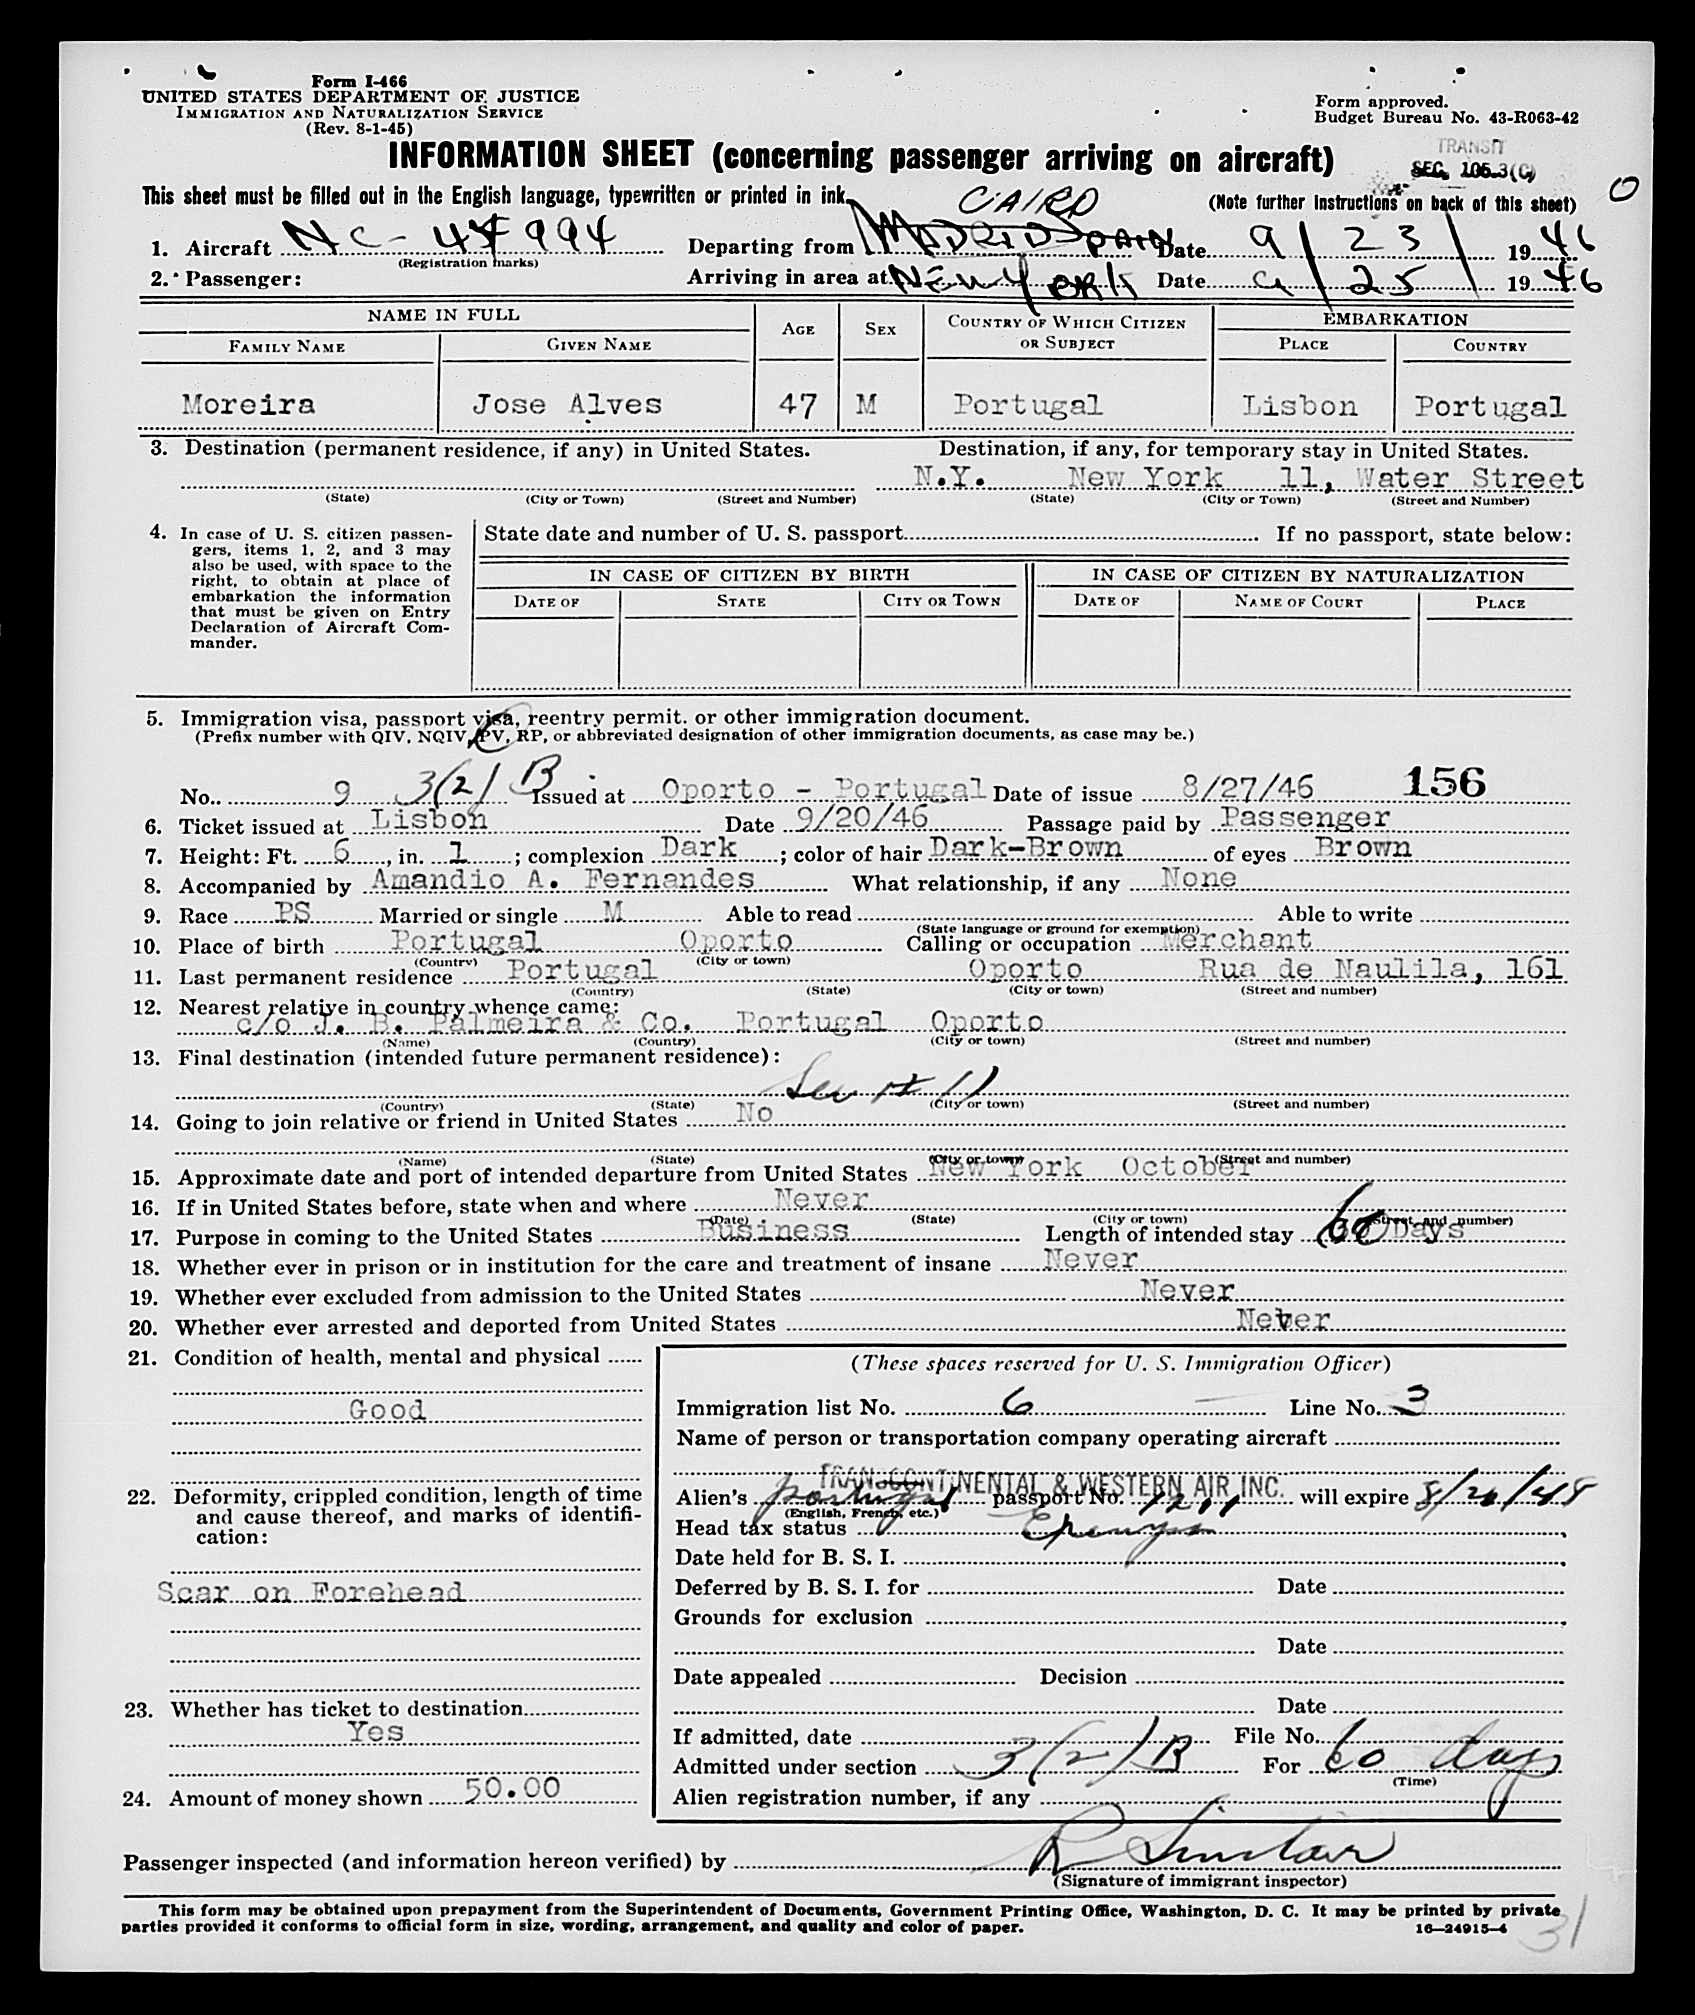 Form I-466
UNITED STATES DEPARTMENT OF JUSTICE
IMMIGRATION AND NATURALIZATION SERVICE
(Rev. 8-1-45)
Form approved.
Budget Bureau No. 43-R063-42
INFORMATION SHEET (concerning passenger arriving on aircraft)
TRANSIT
SEC. 105.3(C)
This sheet must be filled out in the English language, typewritten or printed in ink.
(Note further instructions on back of this sheet)
O
CAIRO
1. Aircraft NC-44994 Departing from MADRID SPAIN Date 9/23/ 1946
(Registration marks)
2. Passenger: Arriving in area at NEW YORK Date 9/25/ 1946
NAME IN FULL
FAMILY NAME GIVEN NAME AGE SEX COUNTRY OF WHICH CITIZEN OR SUBJECT EMBARKATION PLACE COUNTRY
Moreira Jose Alves 47 M Portugal Lisbon Portugal
3. Destination (permanent residence, if any) in United States. Destination, if any, for temporary stay in United States.
N.Y. New York 11, Water Street
(State) (City or Town) (Street and Number) (State) (City or Town) (Street and Number)
4. In case of U. S. citizen passen-
gers, items 1, 2, and 3 may
also be used, with space to the
right, to obtain at place of
embarkation the information
that must be given on Entry
Declaration of Aircraft Com-
mander.
State date and number of U. S. passport If no passport, state below:
IN CASE OF CITIZEN BY BIRTH IN CASE OF CITIZEN BY NATURALIZATION
DATE OF STATE CITY OR TOWN DATE OF NAME OF COURT PLACE
5. Immigration visa, passport visa, reentry permit, or other immigration document.
(Prefix number with QIV, NQIV, PV, RP, or abbreviated designation of other immigration documents, as case may be.)
No. 9 3(2) B Issued at Oporto - Portugal Date of issue 8/27/46 156
6. Ticket issued at Lisbon Date 9/20/46 Passage paid by Passenger
7. Height: Ft. 6, in. 1; complexion Dark; color of hair Dark-Brown of eyes Brown
8. Accompanied by Amandio A. Fernandes What relationship, if any None
9. Race PS Married or single M Able to read Able to write
(State language or ground for exemption)
10. Place of birth Portugal Oporto Calling or occupation Merchant
(Country) (City or town)
11. Last permanent residence Portugal Oporto Rua de Naulila, 161
(Country) (State) (City or town) (Street and number)
12. Nearest relative in country whence came:
c/o J. B. Palmeira & Co. Portugal Oporto
(Name) (Country) (City or town) (Street and number)
13. Final destination (intended future permanent residence):
(Country) (State) (City or town) (Street and number)
14. Going to join relative or friend in United States No
(Name) (State) (City or town) (Street and number)
15. Approximate date and port of intended departure from United States New York October
16. If in United States before, state when and where Never
(Date) (State) (City or town) (Street and number)
17. Purpose in coming to the United States Business Length of intended stay 60 Days
18. Whether ever in prison or in institution for the care and treatment of insane Never
19. Whether ever excluded from admission to the United States Never
20. Whether ever arrested and deported from United States Never
21. Condition of health, mental and physical
Good
22. Deformity, crippled condition, length of time
and cause thereof, and marks of identifi-
cation:
Scar on Forehead
23. Whether has ticket to destination
Yes
24. Amount of money shown 50.00
(These spaces reserved for U. S. Immigration Officer)
Immigration list No. 6 Line No. 3
Name of person or transportation company operating aircraft
TRANSCONTINENTAL & WESTERN AIR INC.
Alien's Portugal passport No. will expire
(English, French, etc.)
Head tax status
Date held for B. S. I.
Deferred by B. S. I. for Date
Grounds for exclusion
Date
Date appealed Decision
Date
If admitted, date File No.
Admitted under section 3(2)B For 60 days
(Time)
Alien registration number, if any
Passenger inspected (and information hereon verified) by R Sinclair
(Signature of immigrant inspector)
This form may be obtained upon prepayment from the Superintendent of Documents, Government Printing Office, Washington, D. C. It may be printed by private
parties provided it conforms to official form in size, wording, arrangement, and quality and color of paper.
16—24915-4
31